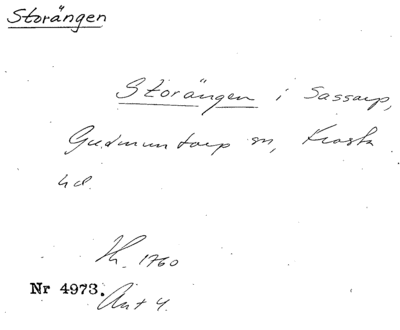 Storängen
Storängen i Sassarp,
Gudmuntorp sn, Frosta
hd.
Hr. 1760
Nr 4973.
Akt 4.